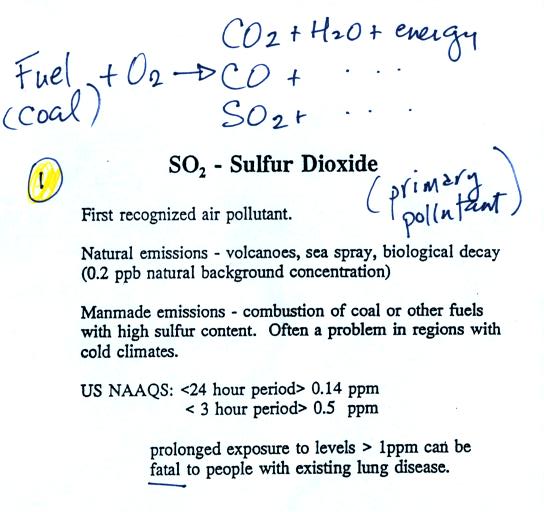 CO2 + H2O + energy
Fuel + O2 → CO + . . .
(coal) SO2 + . . .
1
SO₂ - Sulfur Dioxide
(primary pollutant)
First recognized air pollutant.
Natural emissions - volcanoes, sea spray, biological decay
(0.2 ppb natural background concentration)
Manmade emissions - combustion of coal or other fuels
with high sulfur content. Often a problem in regions with
cold climates.
US NAAQS: <24 hour period> 0.14 ppm
< 3 hour period> 0.5 ppm
prolonged exposure to levels > 1ppm can be
fatal to people with existing lung disease.